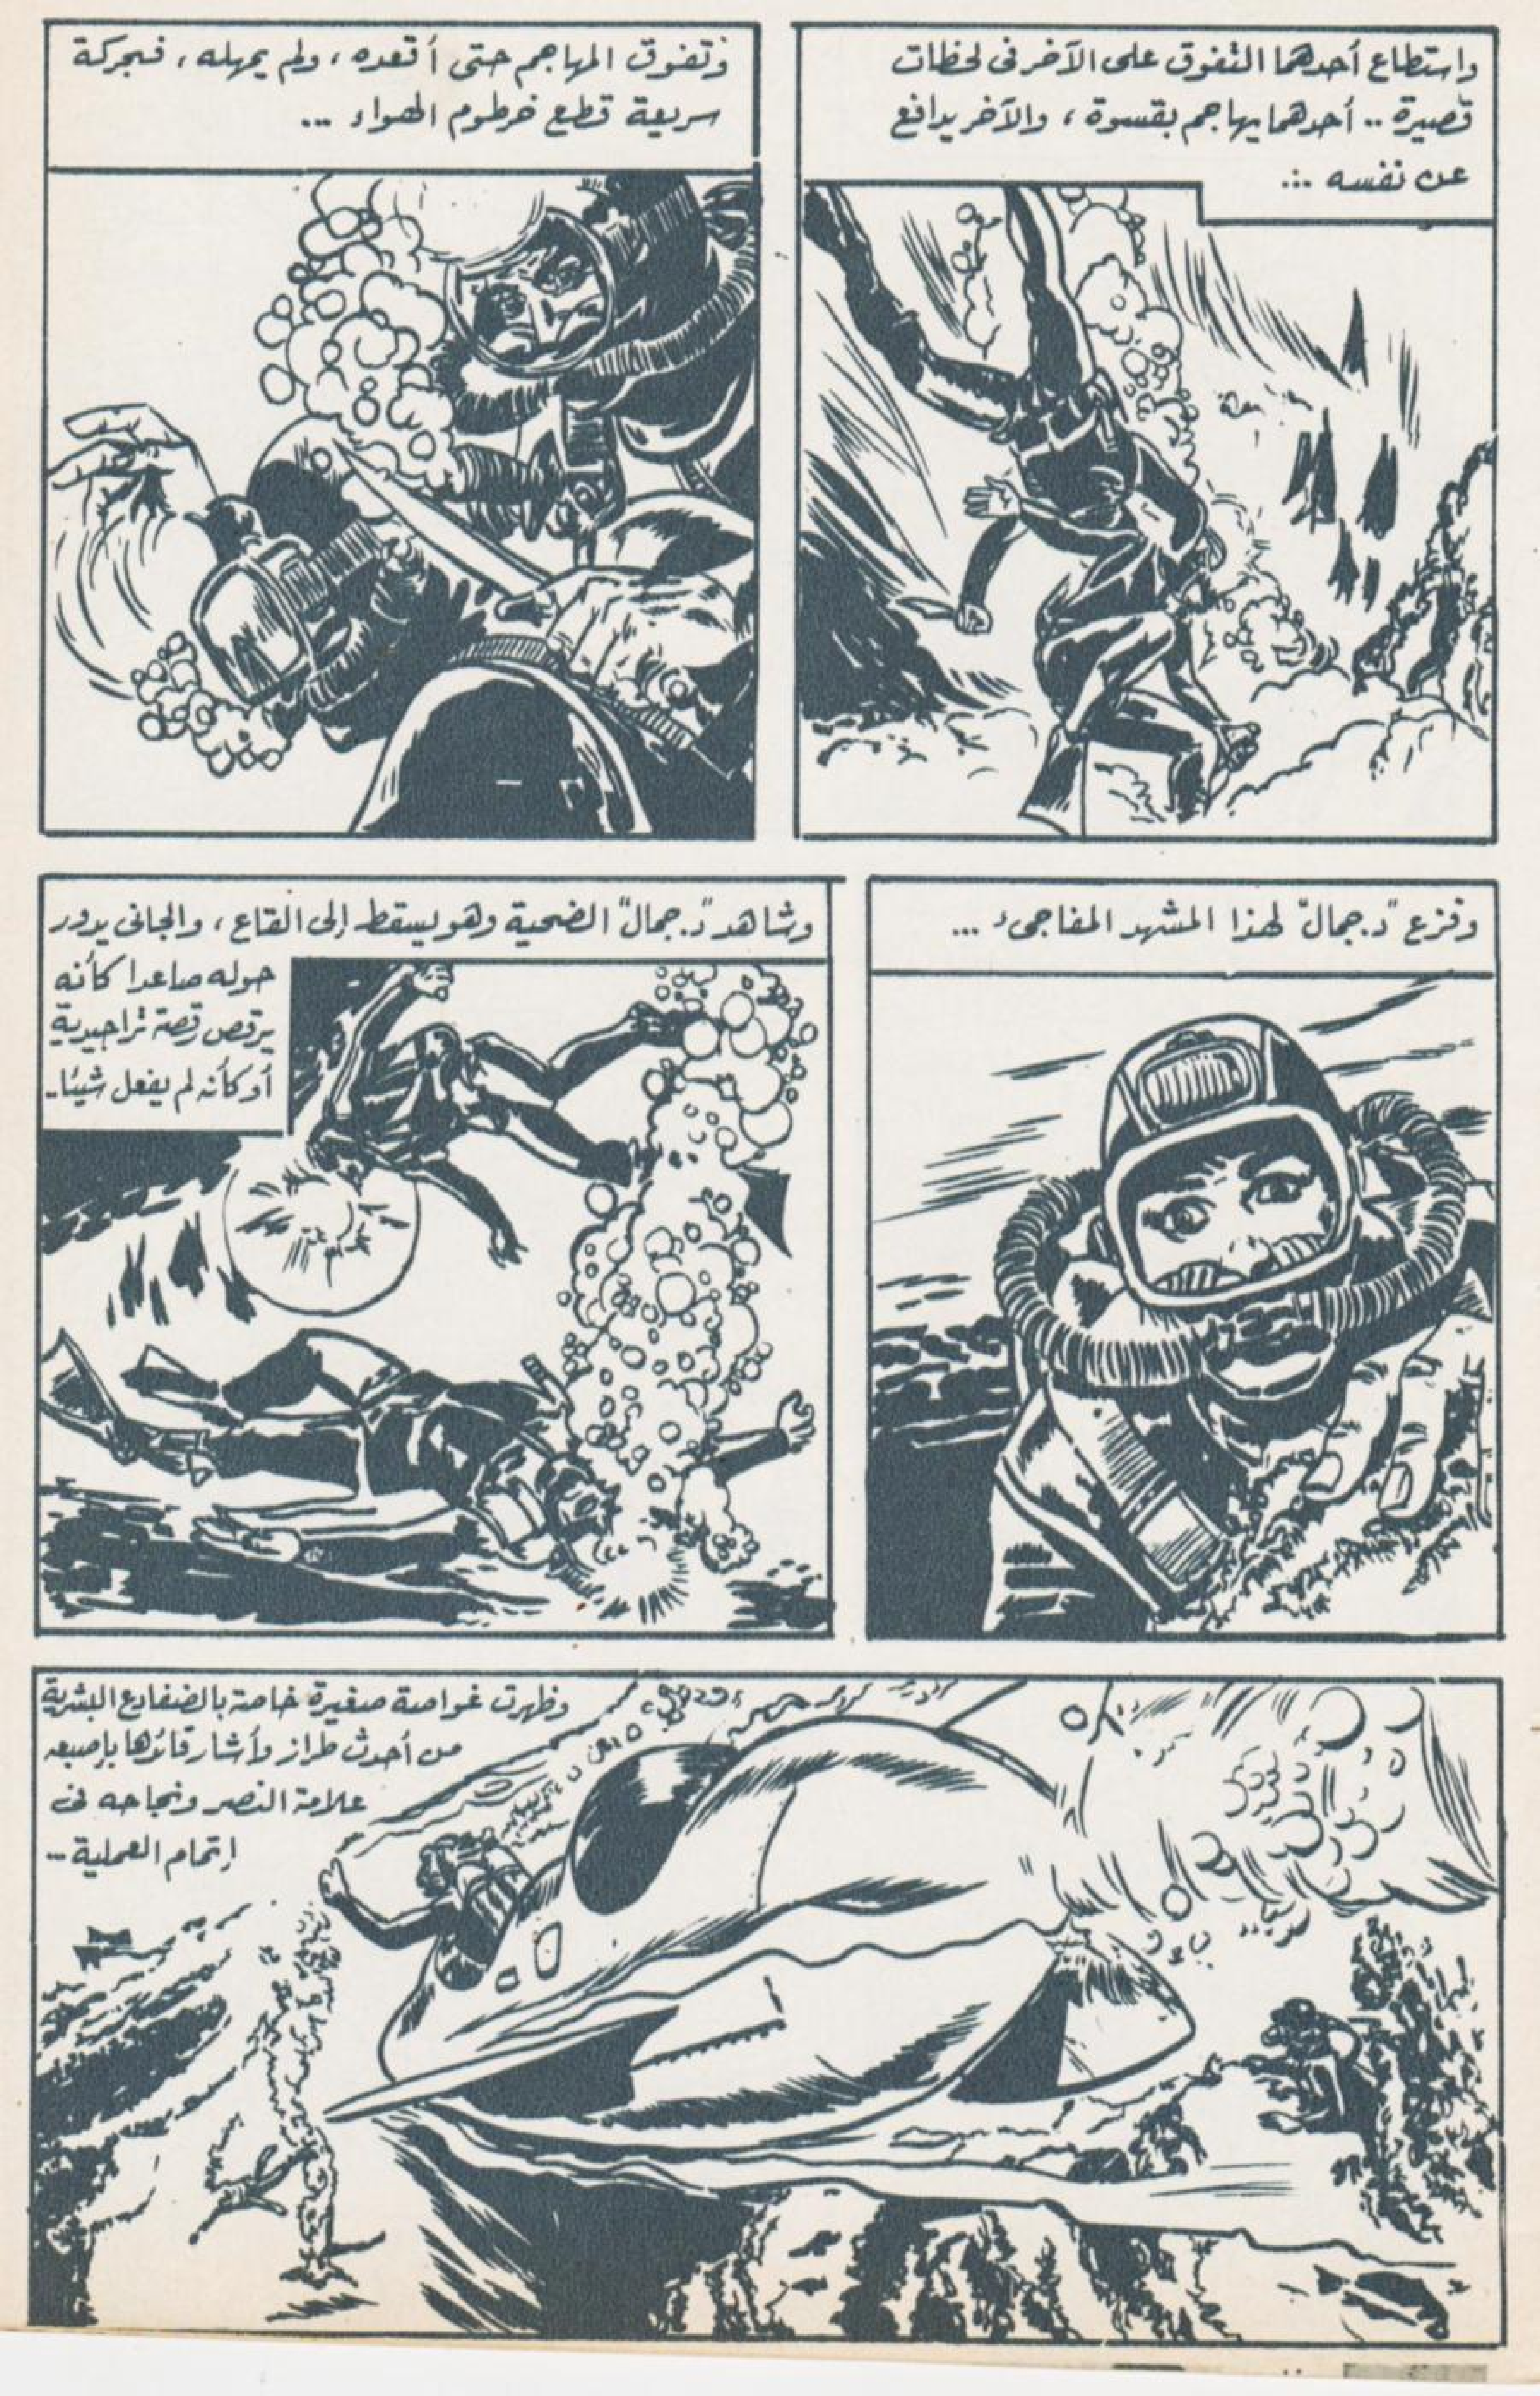 واستطاع أحدهما التفوق على الآخر فى لحظات
قصيرة .. أحدهما يهاجم بقسوة ، والآخر يدافع
عن نفسه ...
وتفوق المهاجم حتى أقعده ، ولم يمهله ، فبحركة
سريعة قطع خرطوم الهواء ...
وفزع "د. جمال" لهذا المشهد المفاجىء ...
وشاهد "د. جمال" الضحية وهو يسقط إلى القاع ، والجانى يدور
حوله صاعدا كأنه
يرقص رقصة تراجيدية
أو كأنه لم يفعل شيئا ..
وظهرت غواصة صغيرة خاصة بالضفادع البشرية
من أحدث طراز وأشار قائدها بإصبعه
علامة النصر ونجاحه فى
إتمام العملية ...